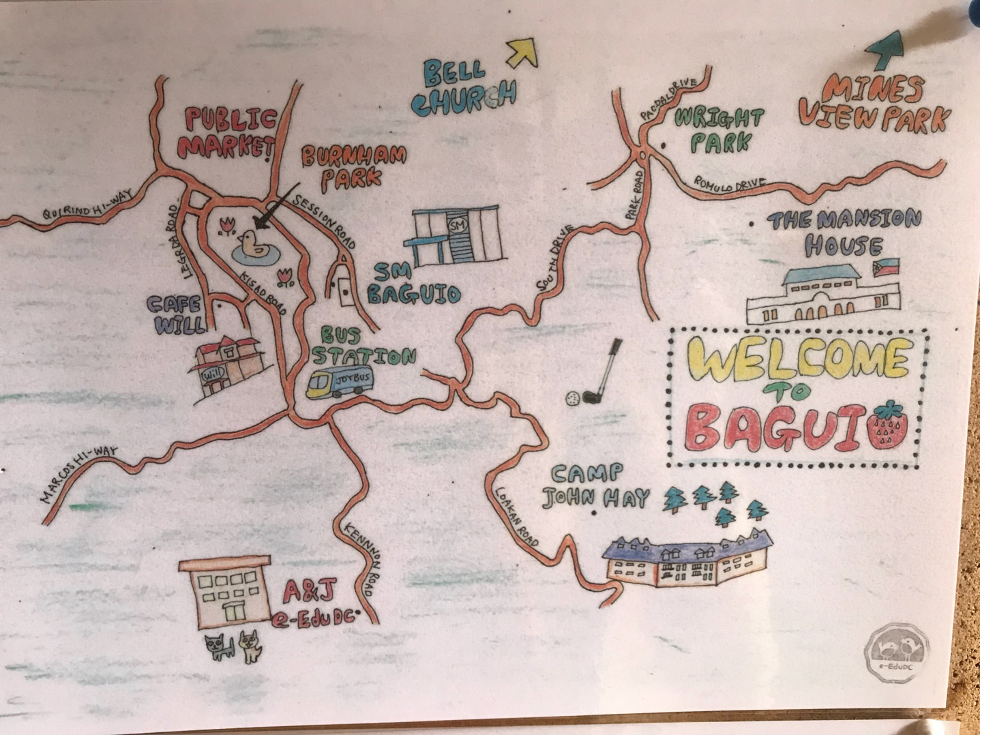 BELL
CHURCH
MINES
VIEW PARK
PUBLIC
MARKET
BURNHAM
PARK
WRIGHT
PARK
ROMULO DRIVE
PARK ROAD
SESSION ROAD
QUIRINO HI-WAY
KISAD ROAD
SOUTH DRIVE
THE MANSION
HOUSE
SM
SM
BAGUIO
CAFE
WILL
Will
BUS
STATION
JOYBUS
WELCOME
TO
BAGUIO
MARCOS HI-WAY
CAMP
JOHN HAY
LOAKAN ROAD
KENNNON ROAD
A&J
e-EduDC
e-EduDC